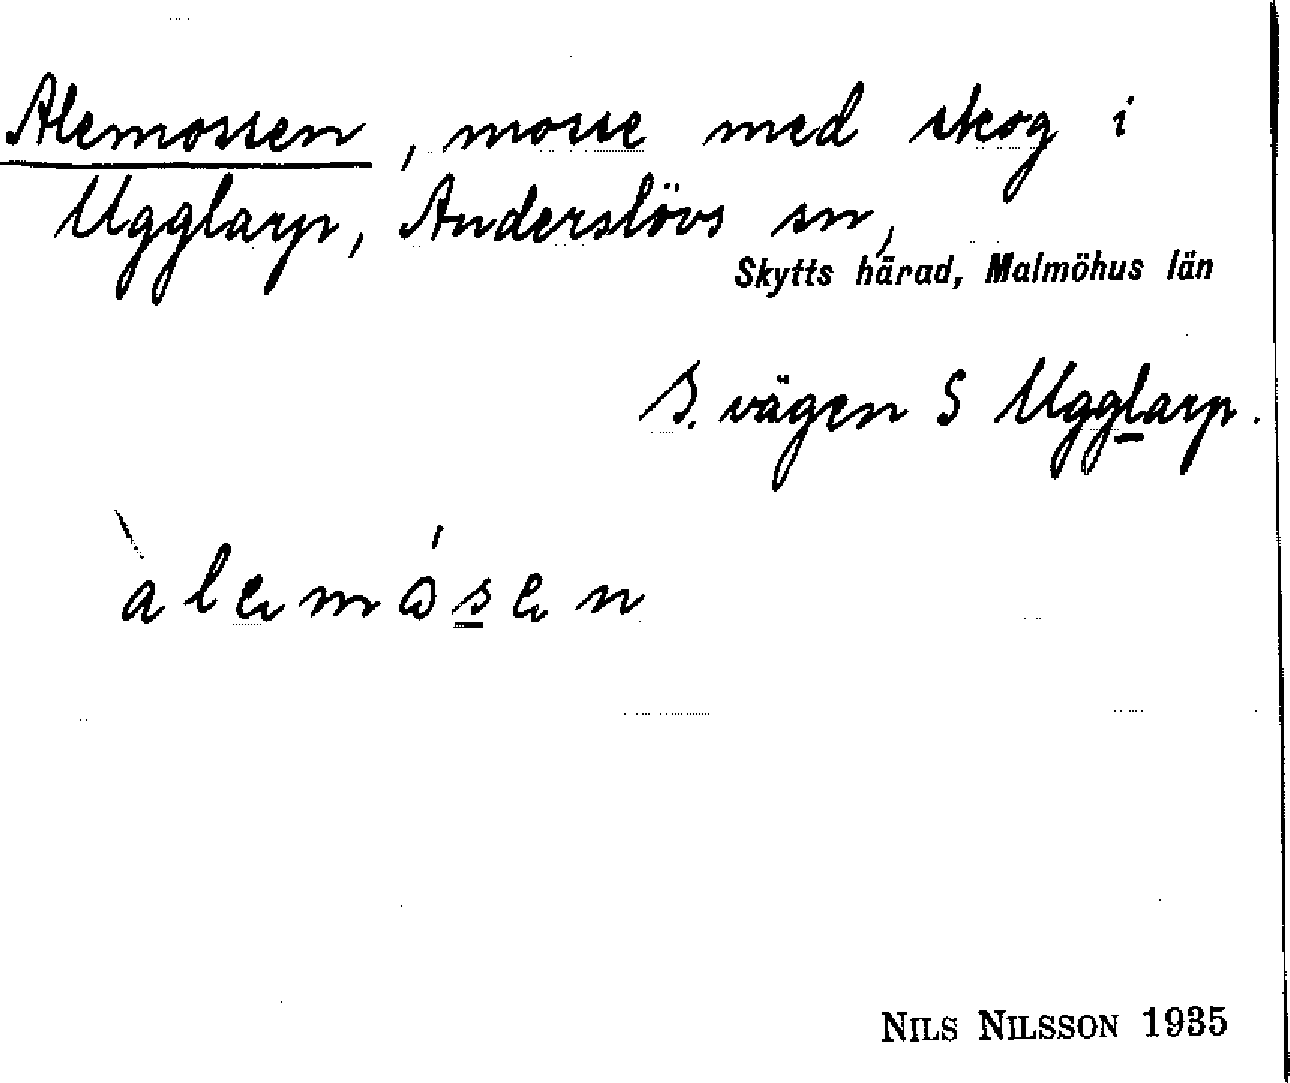 Alemossen, mosse med skog i
Ugglarp, Anderslövs sn,
Skytts härad, Malmöhus län
S. vägen S Ugglarp.
alemåsen
NILS NILSSON 1935